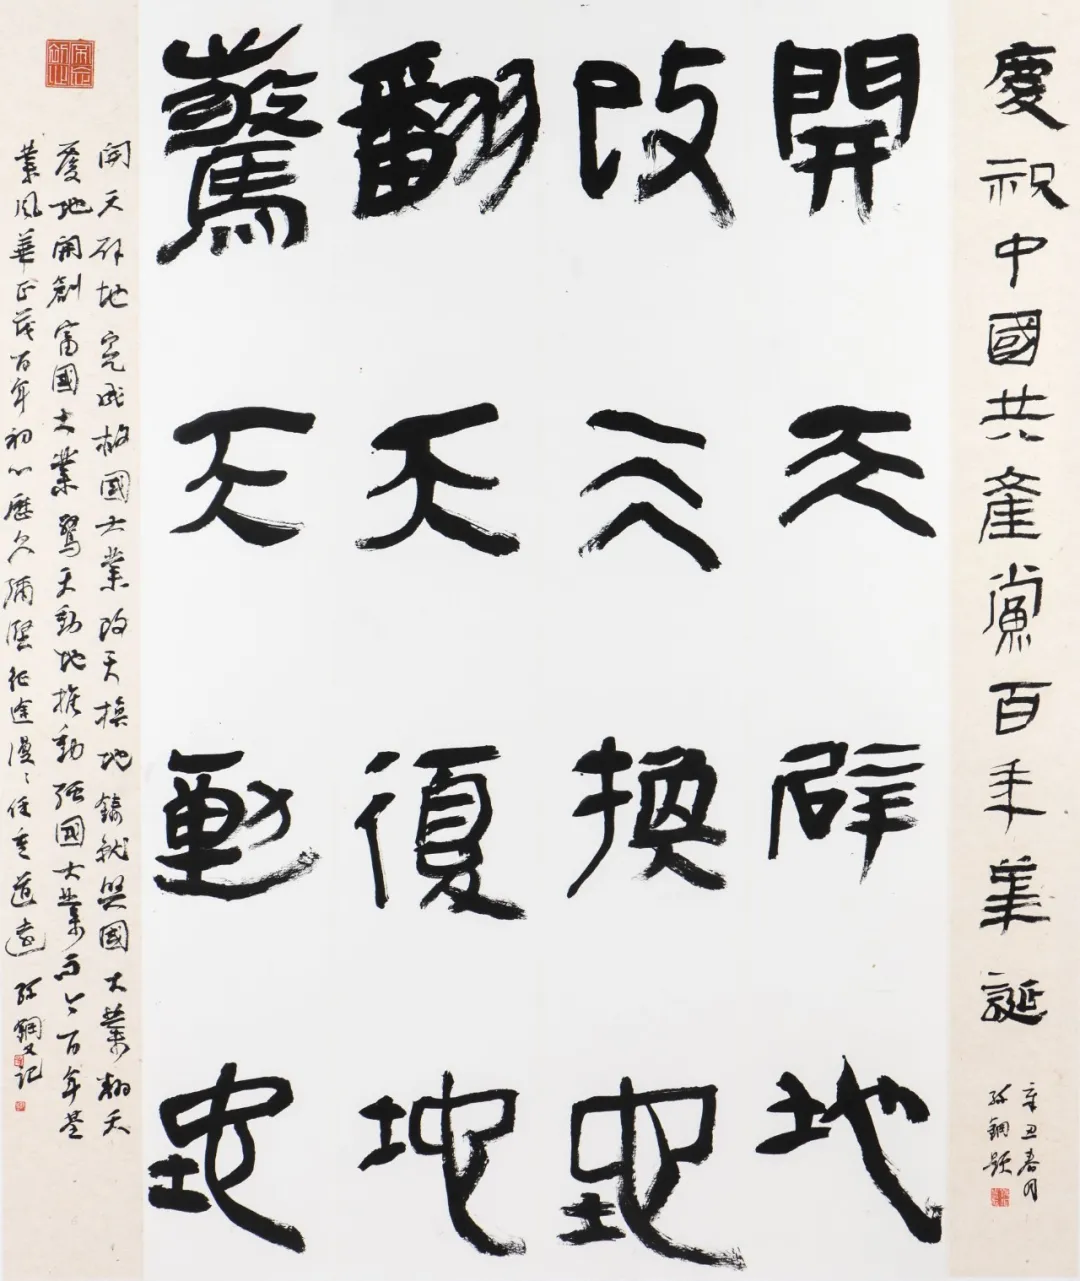 慶祝中國共產黨百年華誕
辛丑春月
鋼題
開天辟地
改天換地
翻天復地
驚天動地
開天辟地完成救國大業改天換地鑄就興國大業翻天
覆地開創富國大業驚天動地推動強國大業而今百年基
業風華正茂百年初心歷久彌堅征途漫漫任重道遠 鋼又記